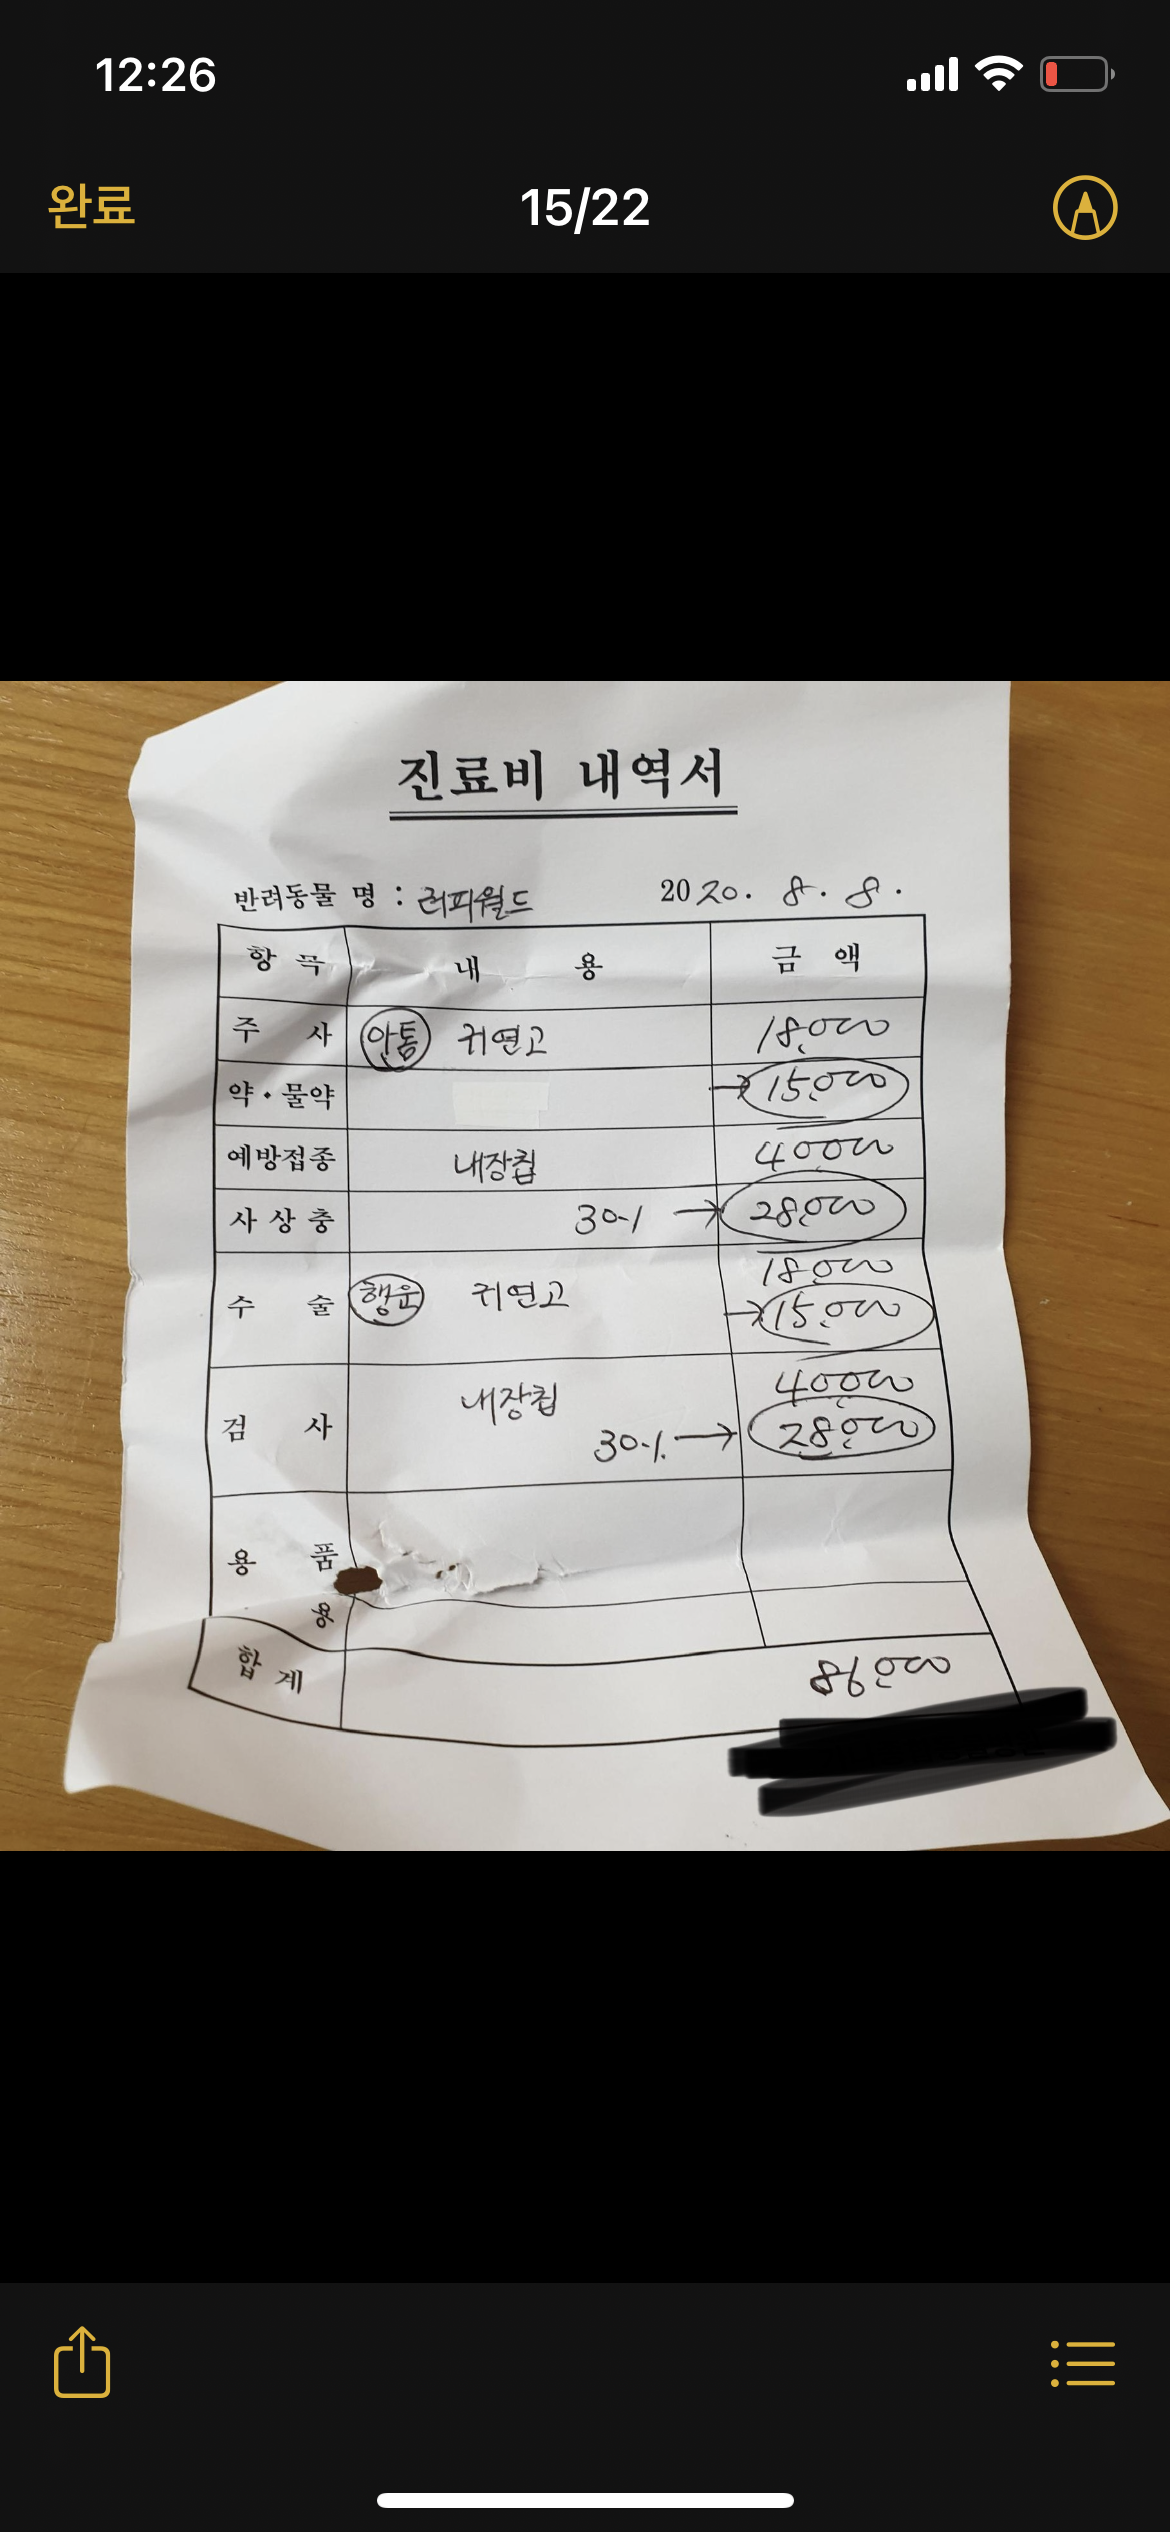 12:26
완료
15/22
진료비 내역서
반려동물 명 : 러피월드 2020. 8. 8.
항 목 내 용 금 액
주 사 안톰 귀연고 18,000
약·물약 → 15,000
예방접종 내장칩 40,000
사 상 충 30% → 28,000
18,000
수 술 행운 귀연고 → 15,000
내장칩 40,000
검 사 30% → 28,000
용 품
용
합 계 86,000